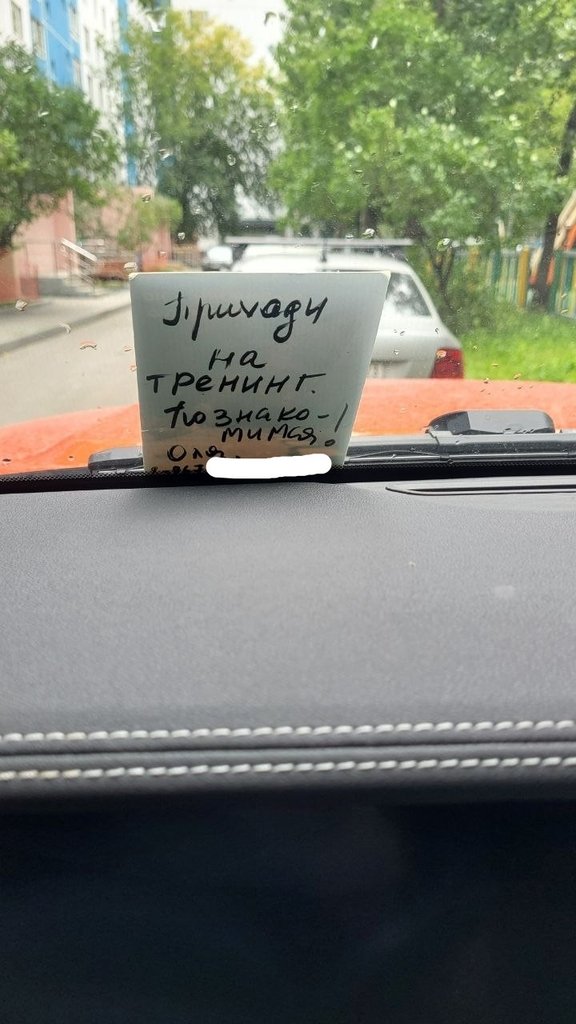 Приходи
на
тренинг.
Познако-
мимся!
Оля.